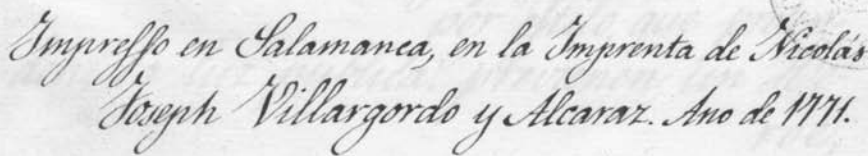 Impresso en Salamanca, en la Imprenta de Nicolás
Joseph Villargordo y Alcaraz. Ano de 1771.